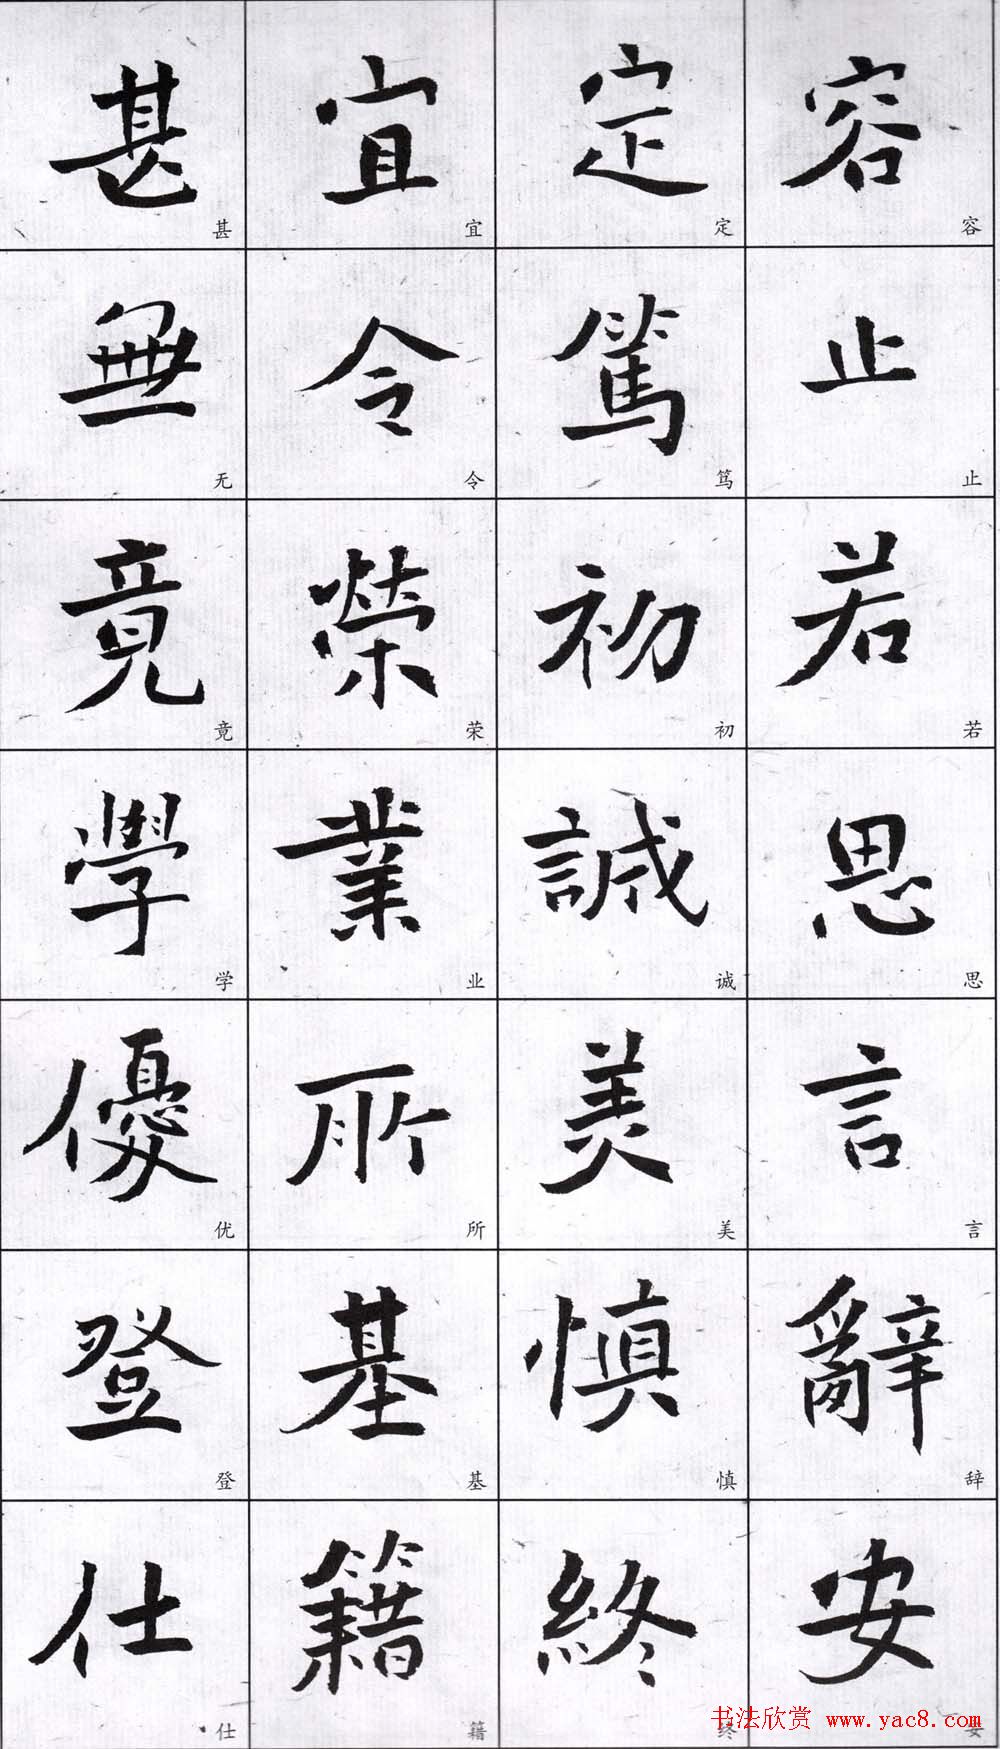 容止若思言辞安
容止若思言辭安
定篤初誠美慎終
定笃初诚美慎终
宜令榮業所基籍
宜令荣业所基籍
甚無竟學優登仕
甚无竟学优登仕
书法欣赏 www.yac8.com